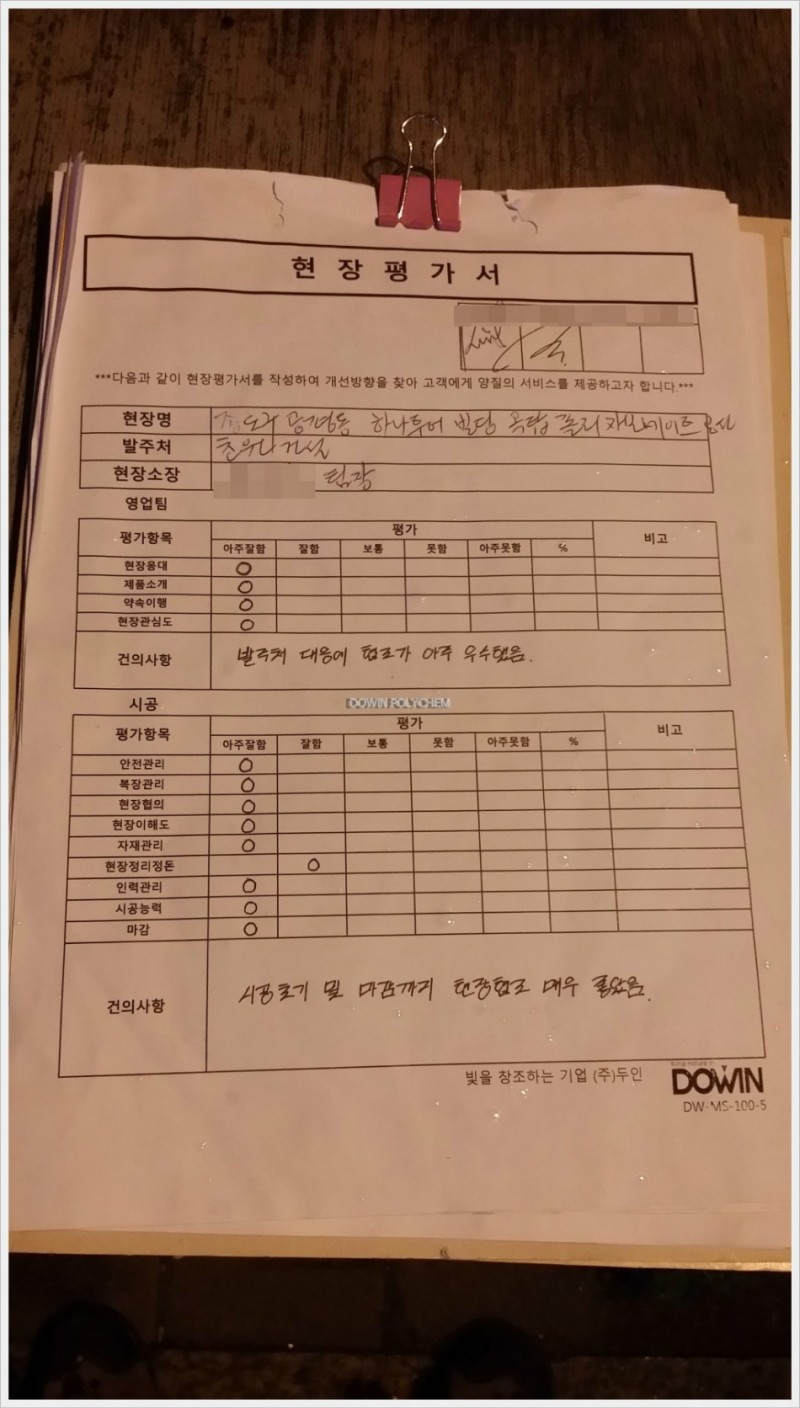 현 장 평 가 서
***다음과 같이 현장평가서를 작성하여 개선방향을 찾아 고객에게 양질의 서비스를 제공하고자 합니다.***
현장명 하나투어 빌딩 옥탑 폴리카보네이트 공사
발주처
현장소장 팀장
영업팀
평가항목 평가 비고
아주잘함 잘함 보통 못함 아주못함 %
현장응대 O
제품소개 O
약속이행 O
현장관심도 O
건의사항 발주처 대응에 협조가 아주 우수했음.
DOWIN POLYCHEM
시공
평가항목 평가 비고
아주잘함 잘함 보통 못함 아주못함 %
안전관리 O
복장관리 O
현장협의 O
현장이해도 O
자재관리 O
현장정리정돈 O
인력관리 O
시공능력 O
마감 O
건의사항 시공초기 및 마감까지 현장협조 매우 좋았음.
빛을 창조하는 기업 (주)두인 DOWIN
DW-MS-100-5